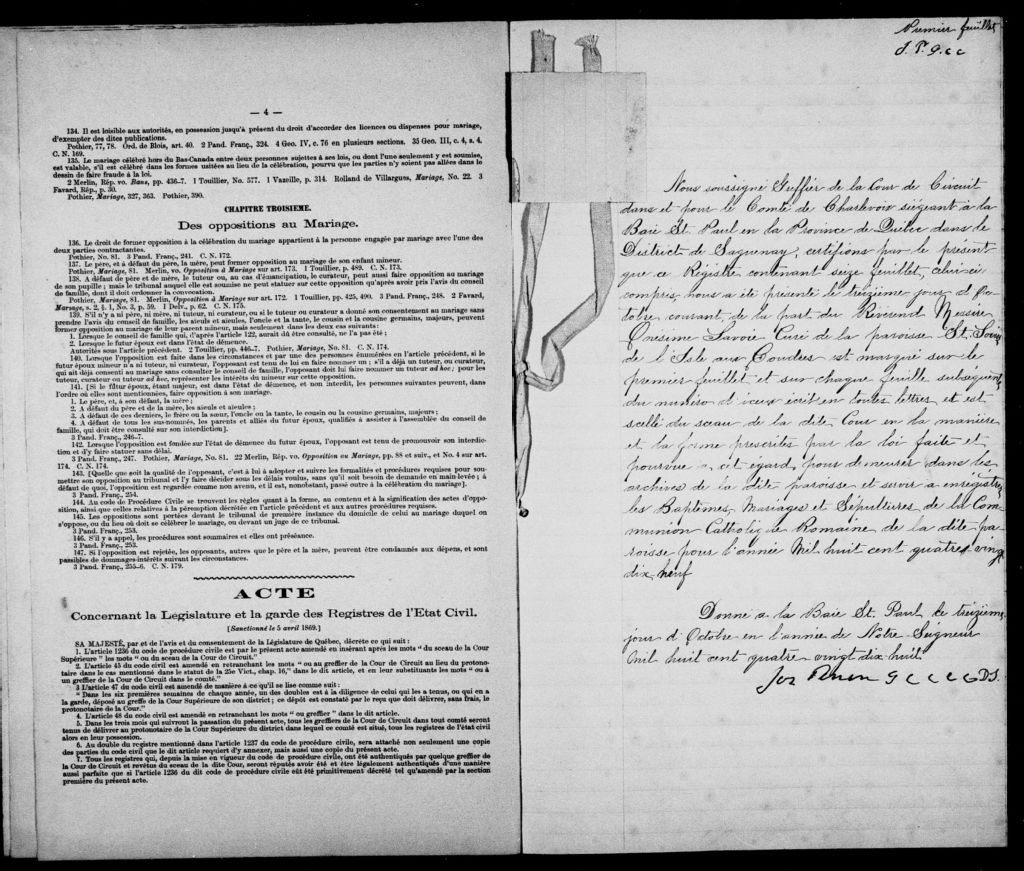 — 4 —
134. Il est loisible aux autorités, en possession jusqu'à présent du droit d'accorder des licences ou dispenses pour mariage,
d'exempter des dites publications.
Pothier, 77, 78. Ord. de Blois, art. 40. 2 Pand. Franç., 324. 4 Geo. IV, c. 76 en plusieurs sections. 35 Geo. III, c. 4, s. 4.
C. N. 169.
135. Le mariage célébré hors du Bas-Canada entre deux personnes sujettes à ses lois, ou dont l'une seulement y est soumise,
est valable, s'il est célébré dans les formes usitées au lieu de la célébration, pourvu que les parties n'y soient pas allées dans le
dessin de faire fraude à la loi.
2 Merlin, Rép. vo. Bans, pp. 436-7. 1 Touillier, No. 577. 1 Vazeille, p. 314. Rolland de Villargues, Mariage, No. 22. 3
Favard, Rép., p. 30.
Pothier, Mariage, 327, 363. Pothier, 390.
CHAPITRE TROISIEME.
Des oppositions au Mariage.
136. Le droit de former opposition à la célébration du mariage appartient à la personne engagée par mariage avec l'une des
deux parties contractantes.
Pothier, No. 81. 3 Pand. Franç., 241. C. N. 172.
137. Le père, et à défaut du père, la mère, peut former opposition au mariage de son enfant mineur.
Pothier, Mariage, 81. Merlin, vo. Opposition à Mariage sur art. 173. 1 Touillier, p. 489. C. N. 173.
138. A défaut de père et de mère, le tuteur ou, au cas d'émancipation, le curateur, peut aussi faire opposition au mariage
de son pupille ; mais le tribunal auquel elle est soumise ne peut statuer sur cette opposition qu'après avoir pris l'avis du conseil
de famille, dont il doit ordonner la convocation.
Pothier, Mariage, 81. Merlin, Opposition à Mariage sur art. 172. 1 Touillier, pp. 425, 490. 3 Pand. Franç., 248. 2 Favard,
Mariage, s. 2, § 1, No. 3, p. 59. 1 Delv., p. 62. C. N. 175.
139. S'il n'y a ni père, ni mère, ni tuteur, ni curateur, ou si le tuteur ou curateur a donné son consentement au mariage sans
prendre l'avis du conseil de famille, les aïeuls et aïeules, l'oncle et la tante, le cousin et la cousine germains, majeurs, peuvent
former opposition au mariage de leur parent mineur, mais seulement dans les deux cas suivants :
1. Lorsque le conseil de famille qui, d'après l'article 122, aurait dû être consulté, ne l'a pas été ;
2. Lorsque le futur époux est dans l'état de démence.
Autorités sous l'article précédent. 2 Touillier, pp. 446-7. Pothier, Mariage, No. 81. C. N. 174.
140. Lorsque l'opposition est faite dans les circonstances et par une des personnes énumérées en l'article précédent, si le
futur époux mineur n'a ni tuteur, ni curateur, l'opposant est tenu de lui en faire nommer un ; s'il a déjà un tuteur, ou curateur,
qui ait déjà consenti au mariage sans consulter le conseil de famille, l'opposant doit lui faire nommer un tuteur ad hoc ; pour les
tuteur, curateur ou tuteur ad hoc, représenter les intérêts du mineur sur cette opposition.
141. [Si le futur époux, étant majeur, est dans l'état de démence, et non interdit, les personnes suivantes peuvent, dans
l'ordre où elles sont mentionnées, faire opposition à son mariage.
1. Le père, et, à son défaut, la mère ;
2. A défaut du père et de la mère, les aïeuls et aïeules ;
3. A défaut de ces derniers, le frère ou la sœur, l'oncle ou la tante, le cousin ou la cousine germains, majeurs ;
4. A défaut de tous les sus-nommés, les parents et alliés du futur époux, qualifiés à assister à l'assemblée du conseil de
famille, qui doit être consulté sur son interdiction].
3 Pand. Franç., 246-7.
142. Lorsque l'opposition est fondée sur l'état de démence du futur époux, l'opposant est tenu de promouvoir son interdic-
tion et d'y faire statuer sans délai.
3 Pand. Franç., 247. Pothier, Mariage, No. 81. 22 Merlin, Rép. vo. Opposition au Mariage, pp. 88 et suiv., et No. 4 sur art.
174. C. N. 174.
143. [Quelle que soit la qualité de l'opposant, c'est à lui à adopter et suivre les formalités et procédures requises pour sou-
mettre son opposition au tribunal et l'y faire décider sous les délais voulus, sans qu'il soit besoin de demande en main-levée ; à
défaut de quoi, l'opposition est regardée comme non avenu, et il est, nonobstant, passé outre à la célébration du mariage].
3 Pand. Franç., 254.
144. Au code de Procédure Civile se trouvent les règles quant à la forme, au contenu et à la signification des actes d'oppo-
sition, ainsi que celles relatives à la péremption décrétée en l'article précédent et aux autres procédures requises.
145. Les oppositions sont portées devant le tribunal de première instance du domicile de celui au mariage duquel on
s'oppose, ou du lieu où doit se célébrer le mariage, ou devant un juge de ce tribunal.
3 Pand. Franç., 253.
146. S'il y a appel, les procédures sont sommaires et elles ont préséance.
3 Pand. Franç., 253.
147. Si l'opposition est rejetée, les opposants, autres que le père et la mère, peuvent être condamnés aux dépens, et sont
passibles de dommages-intérêts suivant les circonstances.
3 Pand. Franç., 255-6. C. N. 179.
ACTE
Concernant la Legislature et la garde des Registres de l'Etat Civil.
[Sanctionné le 5 avril 1869.]
SA MAJESTÉ, par et de l'avis et du consentement de la Législature de Québec, décrète ce qui suit :
1. L'article 1236 du code de procédure civile est par le présent acte amendé en insérant après les mots "du sceau de la Cour
Supérieure" les mots "ou du sceau de la Cour de Circuit."
2. L'article 45 du code civil est amendé en retranchant les mots "ou au greffier de la Cour de Circuit au lieu du protono-
taire dans le cas mentionné dans le statut de la 25e Vict., chap. 16," dans le dit article, et en leur substituant les mots "ou à
un greffier de la Cour de Circuit dans le comté."
3 L'article 47 du code civil est amendé de manière à ce qu'il se lise comme suit :
"Dans les six premières semaines de chaque année, un des doubles est à la diligence de celui qui les a tenus, ou qui en a
la garde, déposé au greffe de la Cour Supérieure de son district ; ce dépôt est constaté par le reçu que doit délivrer, sans frais, le
protonotaire de la Cour."
4. L'article 48 du code civil est amendé en retranchant les mots "ou greffier" dans le dit article.
5. Dans les trois mois qui suivront la passation du présent acte, tous les greffiers de la Cour de Circuit dans tout comté seront
tenus de délivrer au protonotaire de la Cour Supérieure du district dans lequel ce comté est situé, tous les registres de l'état civil
alors en leur possession.
6. Au double du registre mentionné dans l'article 1237 du code de procédure civile, sera attaché non seulement une copie
des parties du code civil que le dit article requiert d'y annexer, mais aussi une copie du présent acte.
7. Tous les registres qui, depuis la mise en vigueur du code de procédure civile, ont été authentiqués par quelque greffier de
la Cour de Circuit et revêtus du sceau de la dite Cour, seront réputés avoir été et être légalement authentiqués d'une manière
aussi parfaite que si l'article 1236 du dit code de procédure civile eût été primitivement décrété tel qu'amendé par la section
première du présent acte.
Premier feuillet
J. P. g.c.c
Nous soussigné Greffier de la Cour de Circuit
dans et pour le Comté de Charlevoix siégeant à la
Baie St. Paul en la Province de Québec dans le
District de Saguenay, certifions par le présent
que ce Régistre contenant seize feuillet, celui-ci
compris nous a été présenté le treizième jour d'Oc-
tobre courant, de la part du Révérend Messire
Onésime Savoie Curé de la paroisse St. Louis
de l'Isle aux Coudres est marqué sur le
premier feuillet et sur chaque feuille subséquent
du numéro d'iceux écrit en toutes lettres, et est
scellé du sceau de la dite Cour en la manière
et la forme prescrite par la loi faite et
pourvue à cet égard, pour demeurer dans les
archives de la dite paroisse et servir a enregistrer
les Baptêmes, Mariages et Sépultures de la Com-
munion Catholique Romaine de la dite pa-
roisse pour l'année Mil huit cent quatre-vingt
dix-neuf
Donné a la Baie St. Paul le treizième
jour d'Octobre en l'année de Notre-Seigneur
Mil huit cent quatre-vingt dix-huit